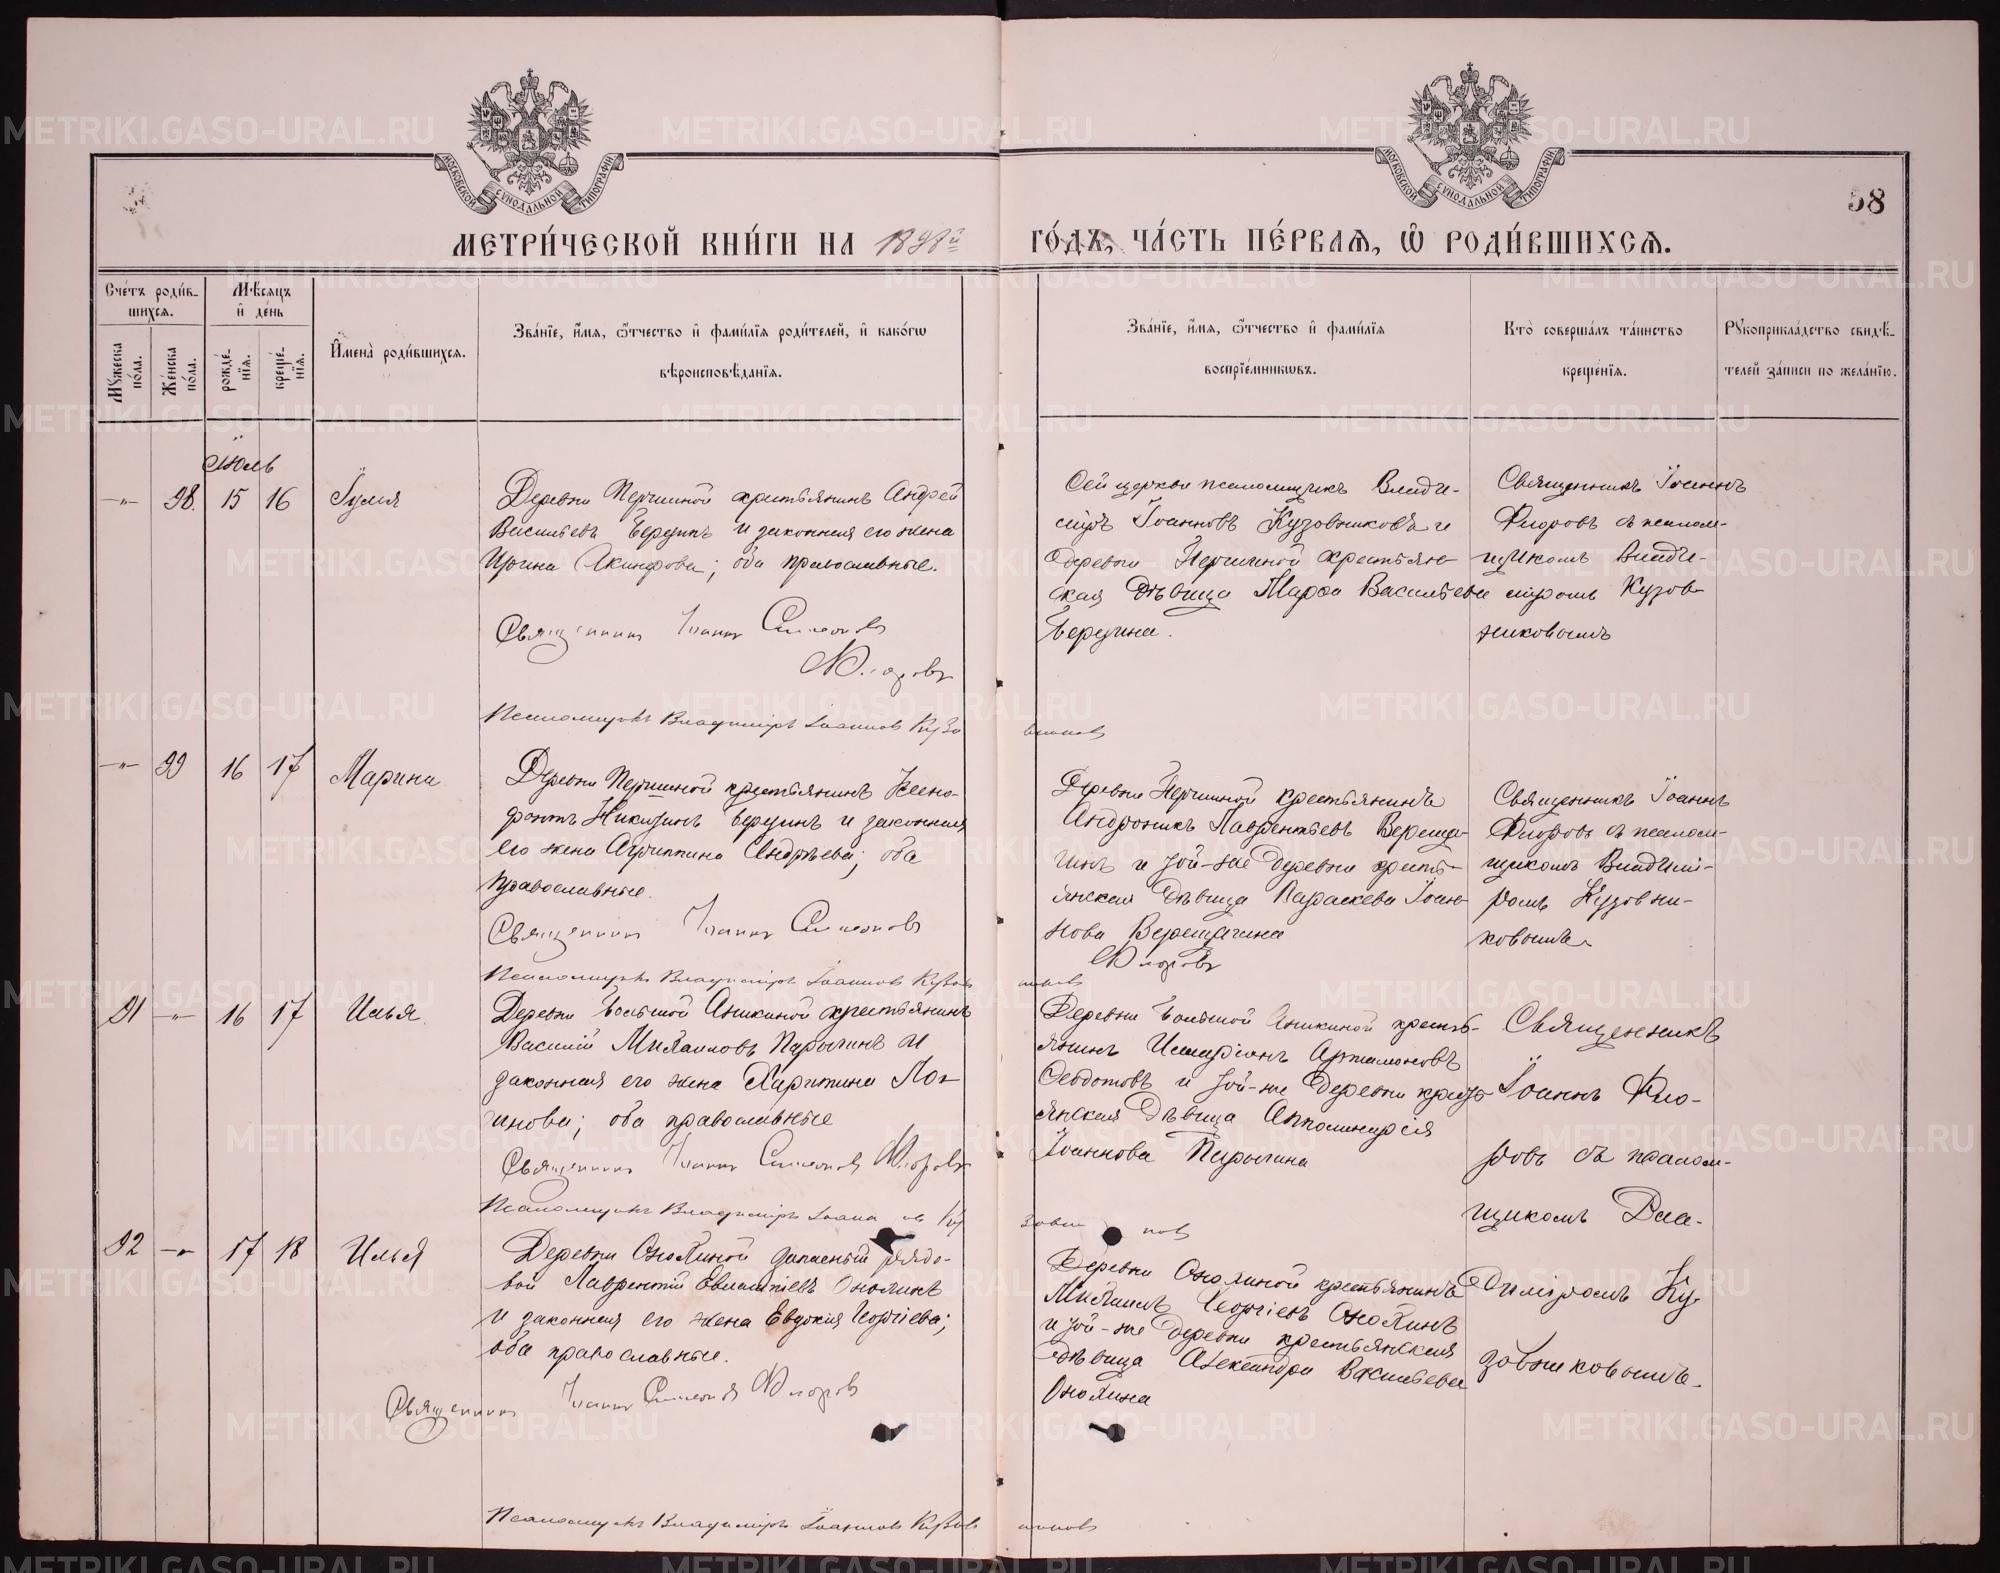 МОСКОВСКОЙ СѴНОДАЛЬНОЙ ТИПОГРАФІИ
МОСКОВСКОЙ СѴНОДАЛЬНОЙ ТИПОГРАФІИ
58
МЕТРИ́ЧЕСКОЙ КНИ́ГИ НА 1898й ГО́ДЪ, ЧА́СТЬ ПЕ́РВАѦ, Ѡ РОДИ́ВШИХСѦ.
Сче́тъ роди́в-
шихсѧ.
Мѣ́сѧцъ
и҆ де́нь
Мꙋ́жеска по́ла.
Же́нска по́ла.
рожде́-
нїѧ.
креще́-
нїѧ.
И҆мена̀ роди́вшихсѧ.
Зва́нїе, и҆́мѧ, ѻ҆́тчество и҆ фами́лїѧ роди́телей, и҆ како́гѡ
вѣроисповѣ́данїѧ.
Зва́нїе, и҆́мѧ, ѻ҆́тчество и҆ фами́лїѧ
воспрїе́мникѡвъ.
Кто̀ соверша́лъ та́инство
креще́нїѧ.
Рꙋкоприкла́дство свидѣ́-
телей за́писи по жела́нїю.
Июль
-„- 28. 15 16 Іулія
Деревни Першиной крестьянинъ Андрей
Васильевъ и законная его жена
Ирина Акинфова; оба православные.
Священникъ Іоаннъ Симеоновъ
Флоровъ
Псаломщикъ Владиміръ Іоанновъ Кузовниковъ
Сей церкви псаломщикъ Влади-
міръ Іоанновъ Кузовниковъ и
деревни Першиной крестьян-
ская дѣвица Марѳа Васильева
Священникъ Іоаннъ
Флоровъ съ псалом-
щикомъ Влади-
міромъ Кузов-
никовымъ
-„- 29 16 17 Марина
Деревни Першиной крестьянинъ Ксено-
фонтъ и законная
его жена Агриппина Андреева; оба
православные.
Священникъ Іоаннъ Симеоновъ
Флоровъ
Псаломщикъ Владиміръ Іоанновъ Кузовниковъ
Деревни Першиной крестьянинъ
Андроникъ Лаврентьевъ Вереща-
гинъ и той-же деревни кресть-
янская дѣвица Параскева Іоан-
нова Верещагина
Священникъ Іоаннъ
Флоровъ съ псалом-
щикомъ Владимі-
ромъ Кузовни-
ковымъ
21 -„- 16 17 Илья
Деревни Большой Аникиной крестьянинъ
Василій Михаиловъ Парыгинъ и
законная его жена Харитина Лог-
инова; оба православные
Священникъ Іоаннъ Симеоновъ Флоровъ
Псаломщикъ Владиміръ
Деревни Большой Аникиной кресть-
янинъ Артамоновъ
Ѳедотовъ и той-же деревни кресть-
янская дѣвица Апполинарія
Іоаннова Парыгина
Священникъ
Іоаннъ Фло-
ровъ съ псалом-
щикомъ Вла-
диміромъ Ку-
зовниковымъ.
22 -„- 17 18 Илья
Деревни Онохиной запасный рядо-
вой Лаврентій Онохинъ
и законная его жена Евдокія Георгіева;
оба православные.
Священникъ Іоаннъ Симеоновъ Флоровъ
Псаломщикъ Владиміръ Іоанновъ Кузовниковъ
Деревни Онохиной крестьянинъ
Михаилъ Георгіевъ Онохинъ
и той-же деревни крестьянская
дѣвица Александра Васильева
Онохина
METRIKI.GASO-URAL.RU